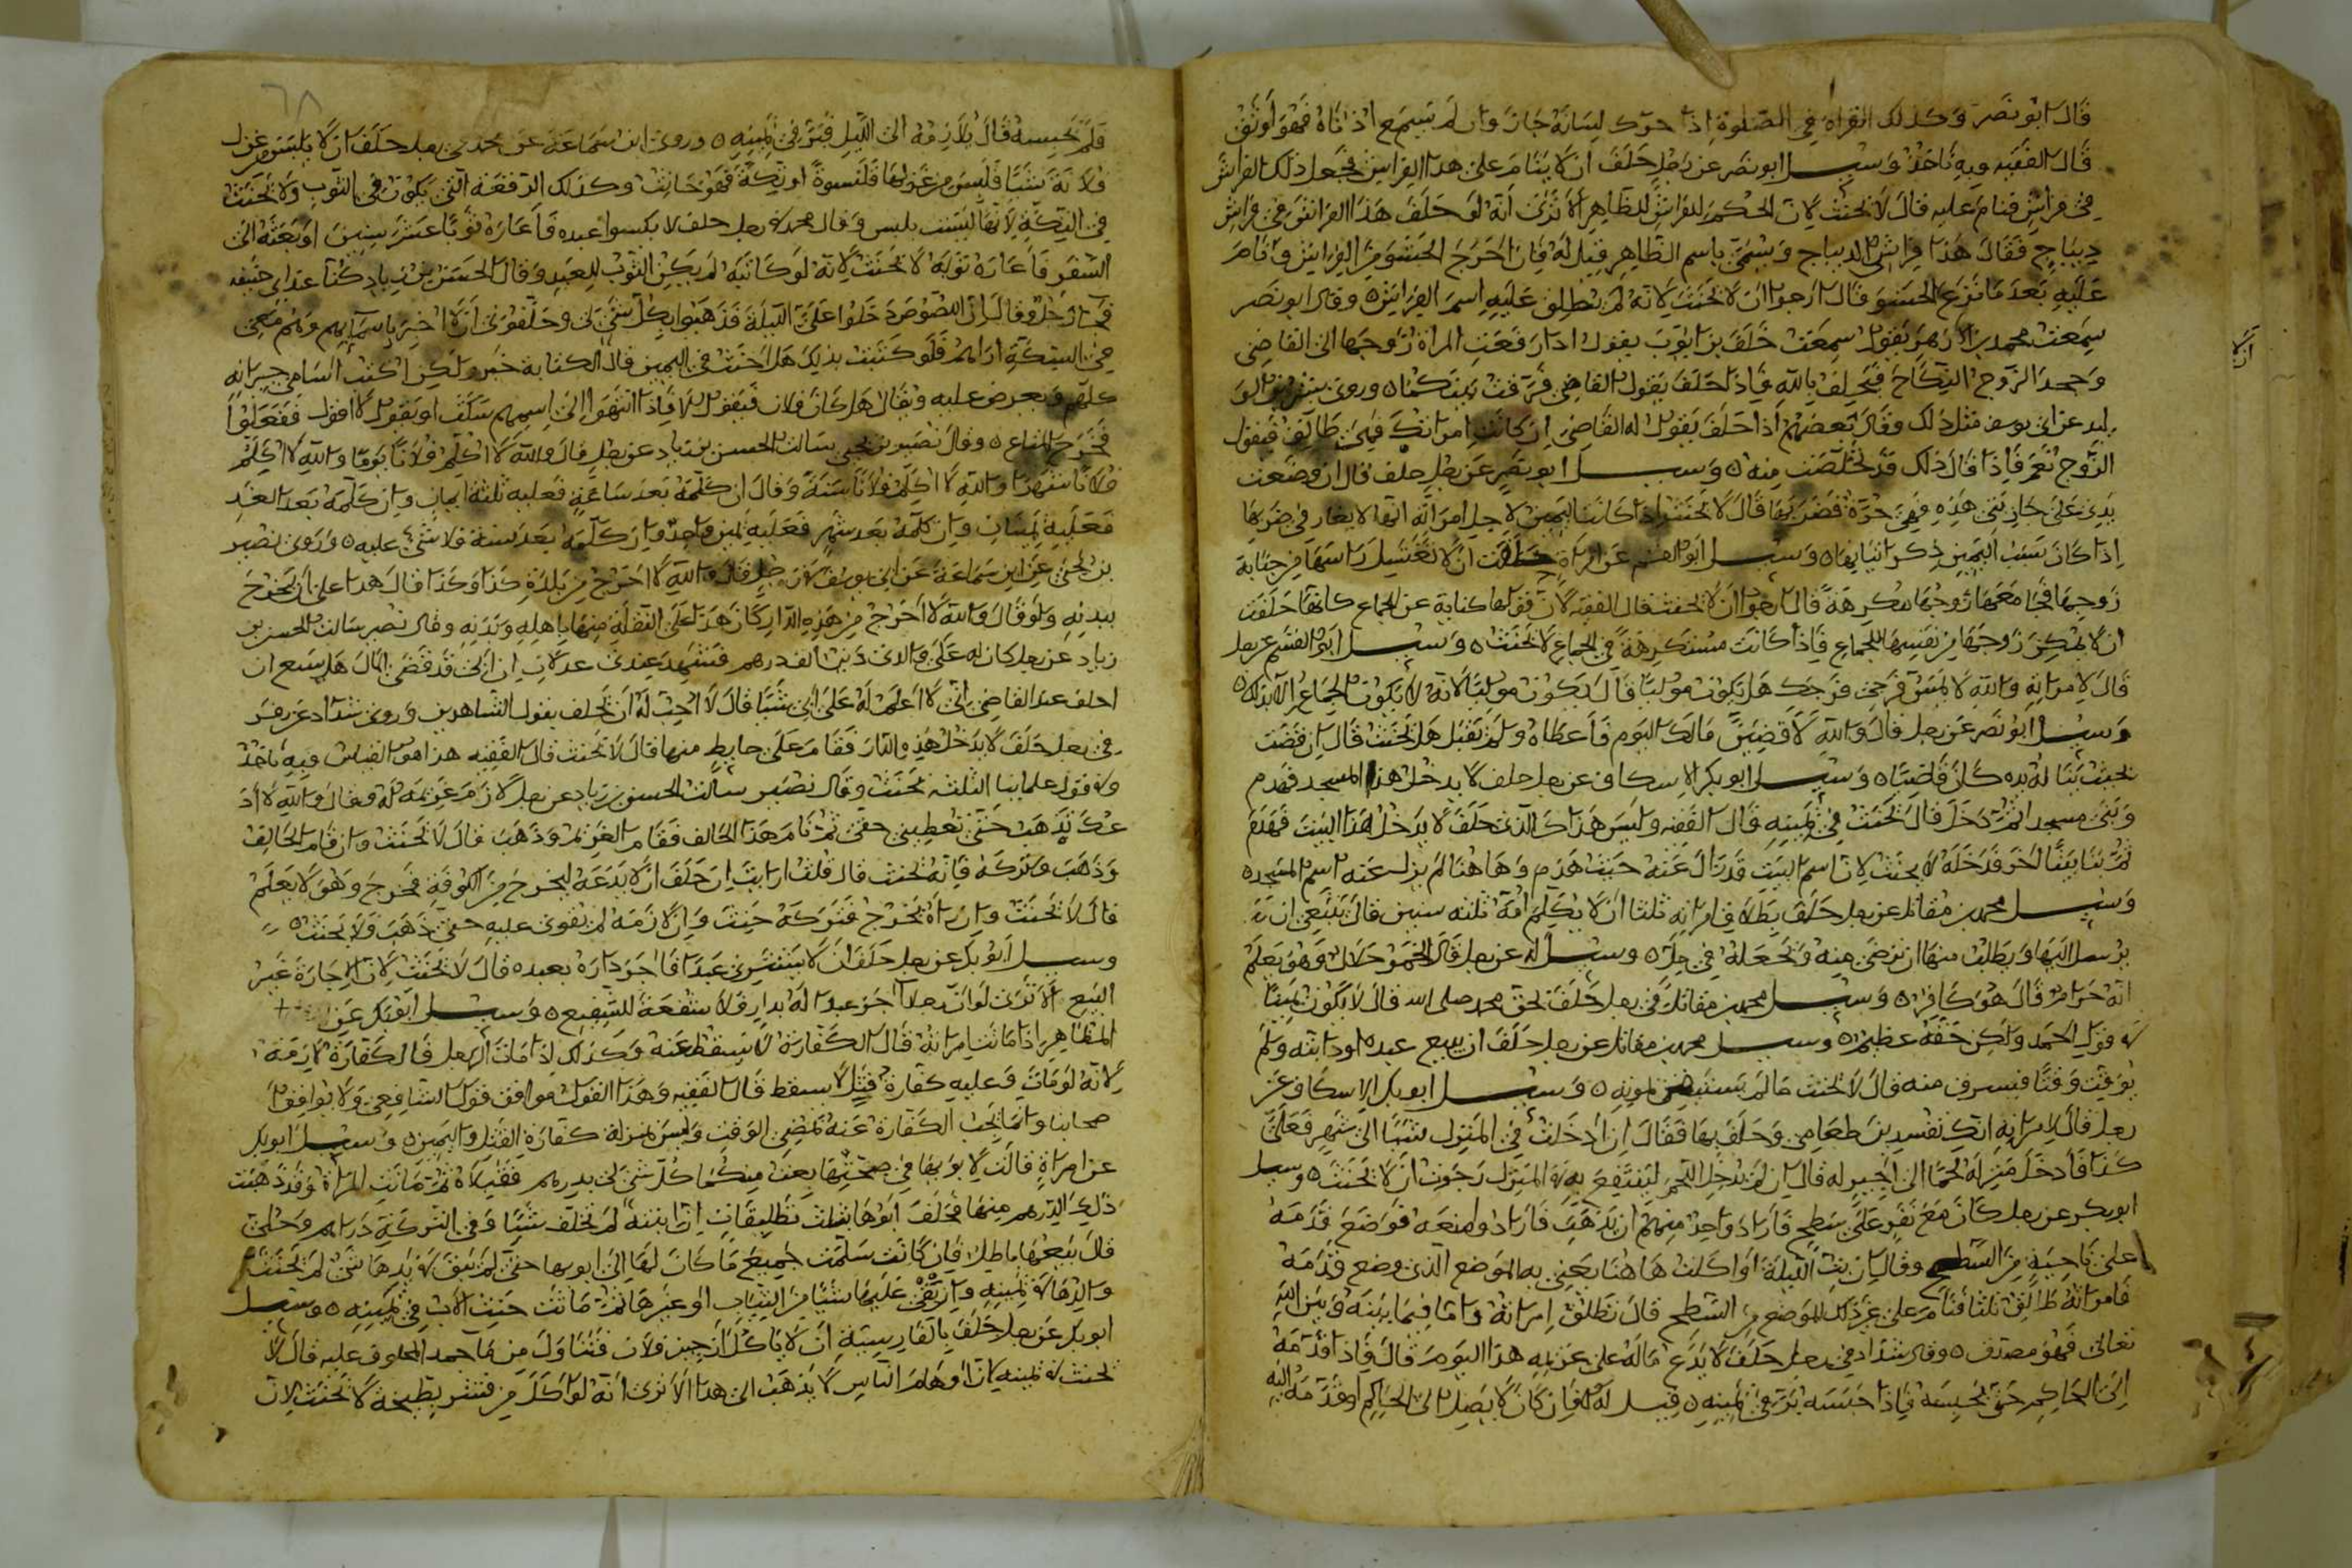 قال ابو نصر وكذلك القراة في الصلوة اذا حرك لسانه جاز وان لم تسمع اذناه فهو اوثق
قال الفقيه وبه ناخذ وسئل ابو نصر عن رجل حلف ان لا ينام على هذا الفراش فجعل ذلك الفراش
في فراش فنام عليه قال لا يحنث لان الحكم للفراش الظاهر الا ترى انه لو حلف هذا الفراش في فراش
ديباج فقال هذا فراش الديباج وسمي باسم الظاهر قيل له فان اخرج الحشو من الفراش ونام
عليه بعد ما نزع الحشو قال ارجوا ان لا يحنث لانه لم يطلق عليه اسم الفراش وقال ابو نصر
سمعت محمد بن الازهر يقول سمعت خلف بن ايوب يقول اذا رفعت المراة زوجها الى القاضي
وجحد الزوج النكاح فيحلف بالله فاذا حلف يقول القاضي فرقت بينكما وروى بشر بن الو
ليد عن ابي يوسف مثل ذلك وقال بعضهم اذا حلف يقول له القاضي ان كانت امراتك فهي طالق فيقول
الزوج نعم فاذا قال ذلك قد تخلصت منه وسئل ابو نصر عن رجل حلف قال ان وضعت
يدي على جاريتي هذه فهي حرة فضربها قال لا يحنث اذا كانت اليمين لاجل امراته انها لا يغار في ضربها
اذا كان سبب اليمين ذكر اتيانها وسئل ابو القسم عن امراة حلفت ان لا تغتسل راسها من جنابة
زوجها فجامعها زوجها مكرهة قال ارجوا ان لا يحنث قال الفقيه لان قولها كناية عن الجماع كانها حلفت
ان لا يمكن زوجها من نفسها للجماع فاذا كانت مستكرهة في الجماع لا تحنث وسئل ابو القسم عن رجل
قال لامراته والله لا يمس فرجي فرجك هل يكون موليا قال يكون موليا لانه لا يكون الجماع الا بذلك
وسئل ابو نصر عن رجل قال والله لاقضين مالك اليوم فاعطاه ولم تقبل هل يحنث قال ان قضت
بحيث تنا له يده كان قاضيا وسئل ابو بكر الاسكاف عن رجل حلف لا يدخل هذا المسجد فهدم
وبنى مسجد ثم دخل قال يحنث في يمينه قال الفقيه وليس هذا كالذي حلف لا يدخل هذا البيت فهدم
ثم بنا بيتا اخر فدخله لا يحنث لان اسم البيت قد زال عنه حيث هدم وهاهنا لم يزل عنه اسم المسجد
وسئل محمد بن مقاتل عن رجل حلف بطلاق امراته ثلثا ان لا يكلم امه ثلثه سنين قال ينبغي ان
يرسل اليها ويطلب منها ان ترضى منه وتجعله في حل وسئل له عن رجل قال الخمر حلال وهو يعلم
انه حرام قال هو كافر وسئل محمد بن مقاتل في رجل حلف بحق محمد صلى الله قال لا يكون يمينا
في قول الحمد ولكن حقه عظيم وسئل محمد بن مقاتل عن رجل حلف ان يبيع عبده او دابته ولم
يوقت وقتا فيسرق منه قال لا يحنث ما لم يستيقن بموته وسئل ابو بكر الاسكاف عن
رجل قال لامراته انك تفسدين طعامي وحلف بها فقال ان ادخلت في المنزل شيئا الى شهر فعلي
كذا فادخل منزله لحما الى اجير له قال ان لم يدخل اللحم لينتفع به في المنزل رجوت ان لا يحنث وسئل
ابو بكر عن رجل كان مع نفر على سطح فاراد واحد منهم ان يذهب فارادوا منعه فوضع قدمه
على ناحية من السطح وقال ان بت الليلة او اكلت هاهنا يعني به الموضع الذي وضع قدمه
فامراته طالق ثلثا فنام على غير ذلك الموضع من السطح قال تطلق امراته واما فيما بينه وبين الله
تعالى فهو مصدق وقال شداد في رجل حلف لا يدع ماله على غريمه هذا اليوم قال فاذا قدمه
الى الحاكم حتى يحبسه فاذا حبسه بر في يمينه قيل له فان كان لا يصل الى الحاكم او قدمه اليه
فلم يحبسه قال يلازمه الى الليل فبر في يمينه وروى ابن سماعة عن محمد في رجل حلف ان لا يلبس من غزل
فلانة شيئا فلبس من غزلها قلنسوة او تكة فهو حانث وكذلك الرقعة التي يكون في الثوب ولا يحنث
في التكة لانها ليست بلبس وقال محمد في رجل حلف لا يكسوا عبده فاعاره ثوبا عشر سنين او بعثه الى
السفر فاعاره ثوبه لا يحنث لانه لو كاتبه لم يكن الثوب للعبد وقال الحسن بن زياد كنا عند ابي حنيفه
فجا رجل وقال ان اللصوص دخلوا على الليلة فذهبوا بكل شيء لي وحلفوني ان لا اخبر باسمايهم وهم معي
في السكة اراهم فلو كتبت بذلك هل احنث في اليمين قال الكتابة خبر ولكن اكتب اسامي جيرانه
كلهم ويعرض عليه ويقال هل كان فلان فيقول لا فاذا انتهوا الى اسمهم سكت او يقول لا اقول ففعلوا
فخرج المتاع وقال نصير بن يحيى سالت الحسن بن زياد عن رجل قال والله لا اكلم فلانا يوما والله لا اكلم
فلانا شهرا والله لا اكلم فلانا سنة وقال ان كلمه بعد ساعة فعليه ثلثة ايمان وان كلمه بعد الغد
فعليه يمينان وان كلمه بعد شهر فعليه يمين واحد وان كلمه بعد سنة فلا شيء عليه وروى نصير
بن يحيى عن ابن سماعة عن ابي يوسف لان رجل قال والله لا اخرج من بلدة كذا وكذا قال هذا على ان يخرج
ببدنه ولو قال والله لا اخرج من هذه الدار كان هذا على النقلة منها باهله وبدنه وقال نصير سالت الحسن بن
زياد عن رجل كان له على والدي دين الف درهم فشهد عندي عدلان ان ابي قد قضى المال هل يسع ان
احلف عند القاضي اني لا اعلم له على ابي شيئا قال لا احب له ان يحلف بقول الشاهدين وروى شداد عن زفر
في رجل حلف لا يدخل هذه الدار فقام على حايط منها قال لا يحنث قال الفقيه هذا هو القياس وبه ناخذ
وفي قول علماينا الثلثه يحنث وقال نصير سالت الحسن بن زياد عن رجل لازم غريمه له وقال والله لا اد
عك تذهب حتى تعطيني حقي ثم نام هذا الحالف فقام الغريم وذهب قال لا يحنث وان قام الحالف
وذهب وتركه فانه يحنث قال قلت ارايت ان حلف ان لا يدعه ليخرج من الكوفة فخرج وهو لا يعلم
قال لا يحنث وان راه يخرج فتركه حنث وان لازمه لم يقوى عليه حتى ذهب فلا يحنث
وسئل ابو بكر عن رجل حلف ان لا يشتري عبدا فاجر داره بعبده قال لا يحنث لان الاجارة غير
البيع الا ترى لو ان رجلا اجر عبدا له بدار فلا شفعة للشفيع وسئل ابو بكر عن
المظاهر اذا ماتت امراته قال الكفارة لا يسقط عنه وكذلك اذا مات الرجل قال كفارة لازمة
لانه لو مات وعليه كفارة قتل لا يسقط قال الفقيه وهذا القول موافق قول الشافعي ولا يوافق
صحابنا وانما يجب الكفارة عنه بمضي الوقت وليس بمنزلة كفارة القتل واليمين وسئل ابو بكر
عن امراة قالت لابويها في صحتها بعت منكما كل شيء لي بدرهم فقبلاه ثم ماتت المراة وقد ذهبت
ذلك الدرهم منها فحلف ابوها بثلث تطليقات ان ابنته لم تخلف شيئا وفي التركة دراهم وحلي
قال بيعها باطل فان كانت سلمت جميع ما كان لها الى ابويها حتى لم يبق في يدها شيء لم يحنث
والدها في يمينه وان بقي عليها شيئا من الثياب او غيرها ثم ماتت حنث الاب في يمينه وسئل
ابو بكر عن رجل حلف بالفارسية ان لا ياكل از جيز فلان فتناول من ما جمد المحلوف عليه قال لا
يحنث في يمينه لان اوهام الناس لا يذهب الى هذا الا ترى انه لو اكل من قشر بطيخة لا يحنث لان